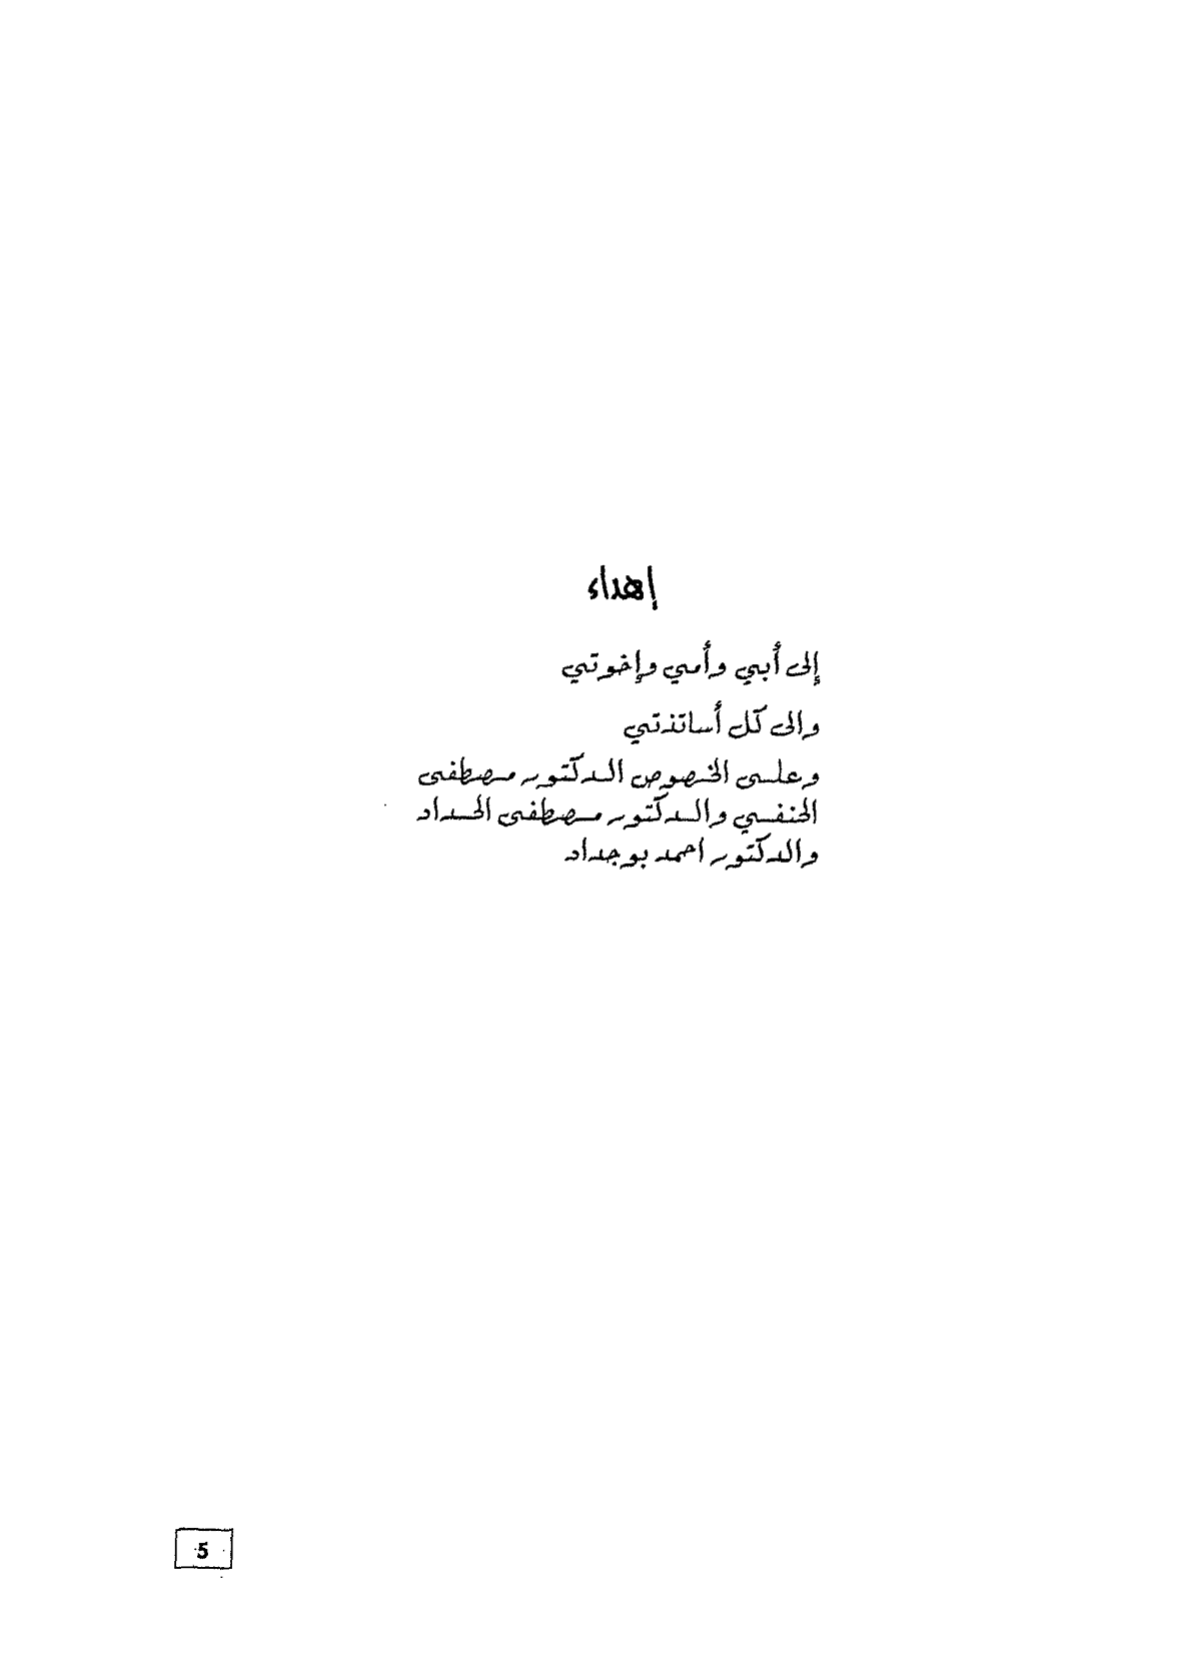 إهداء
إلى أبي وأمي وإخوتي
والى كل أساتذتي
وعلى الخصوص الدكتور مصطفى
الحنفي والدكتور مصطفى الحداد
والدكتور احمد بوجداد
5